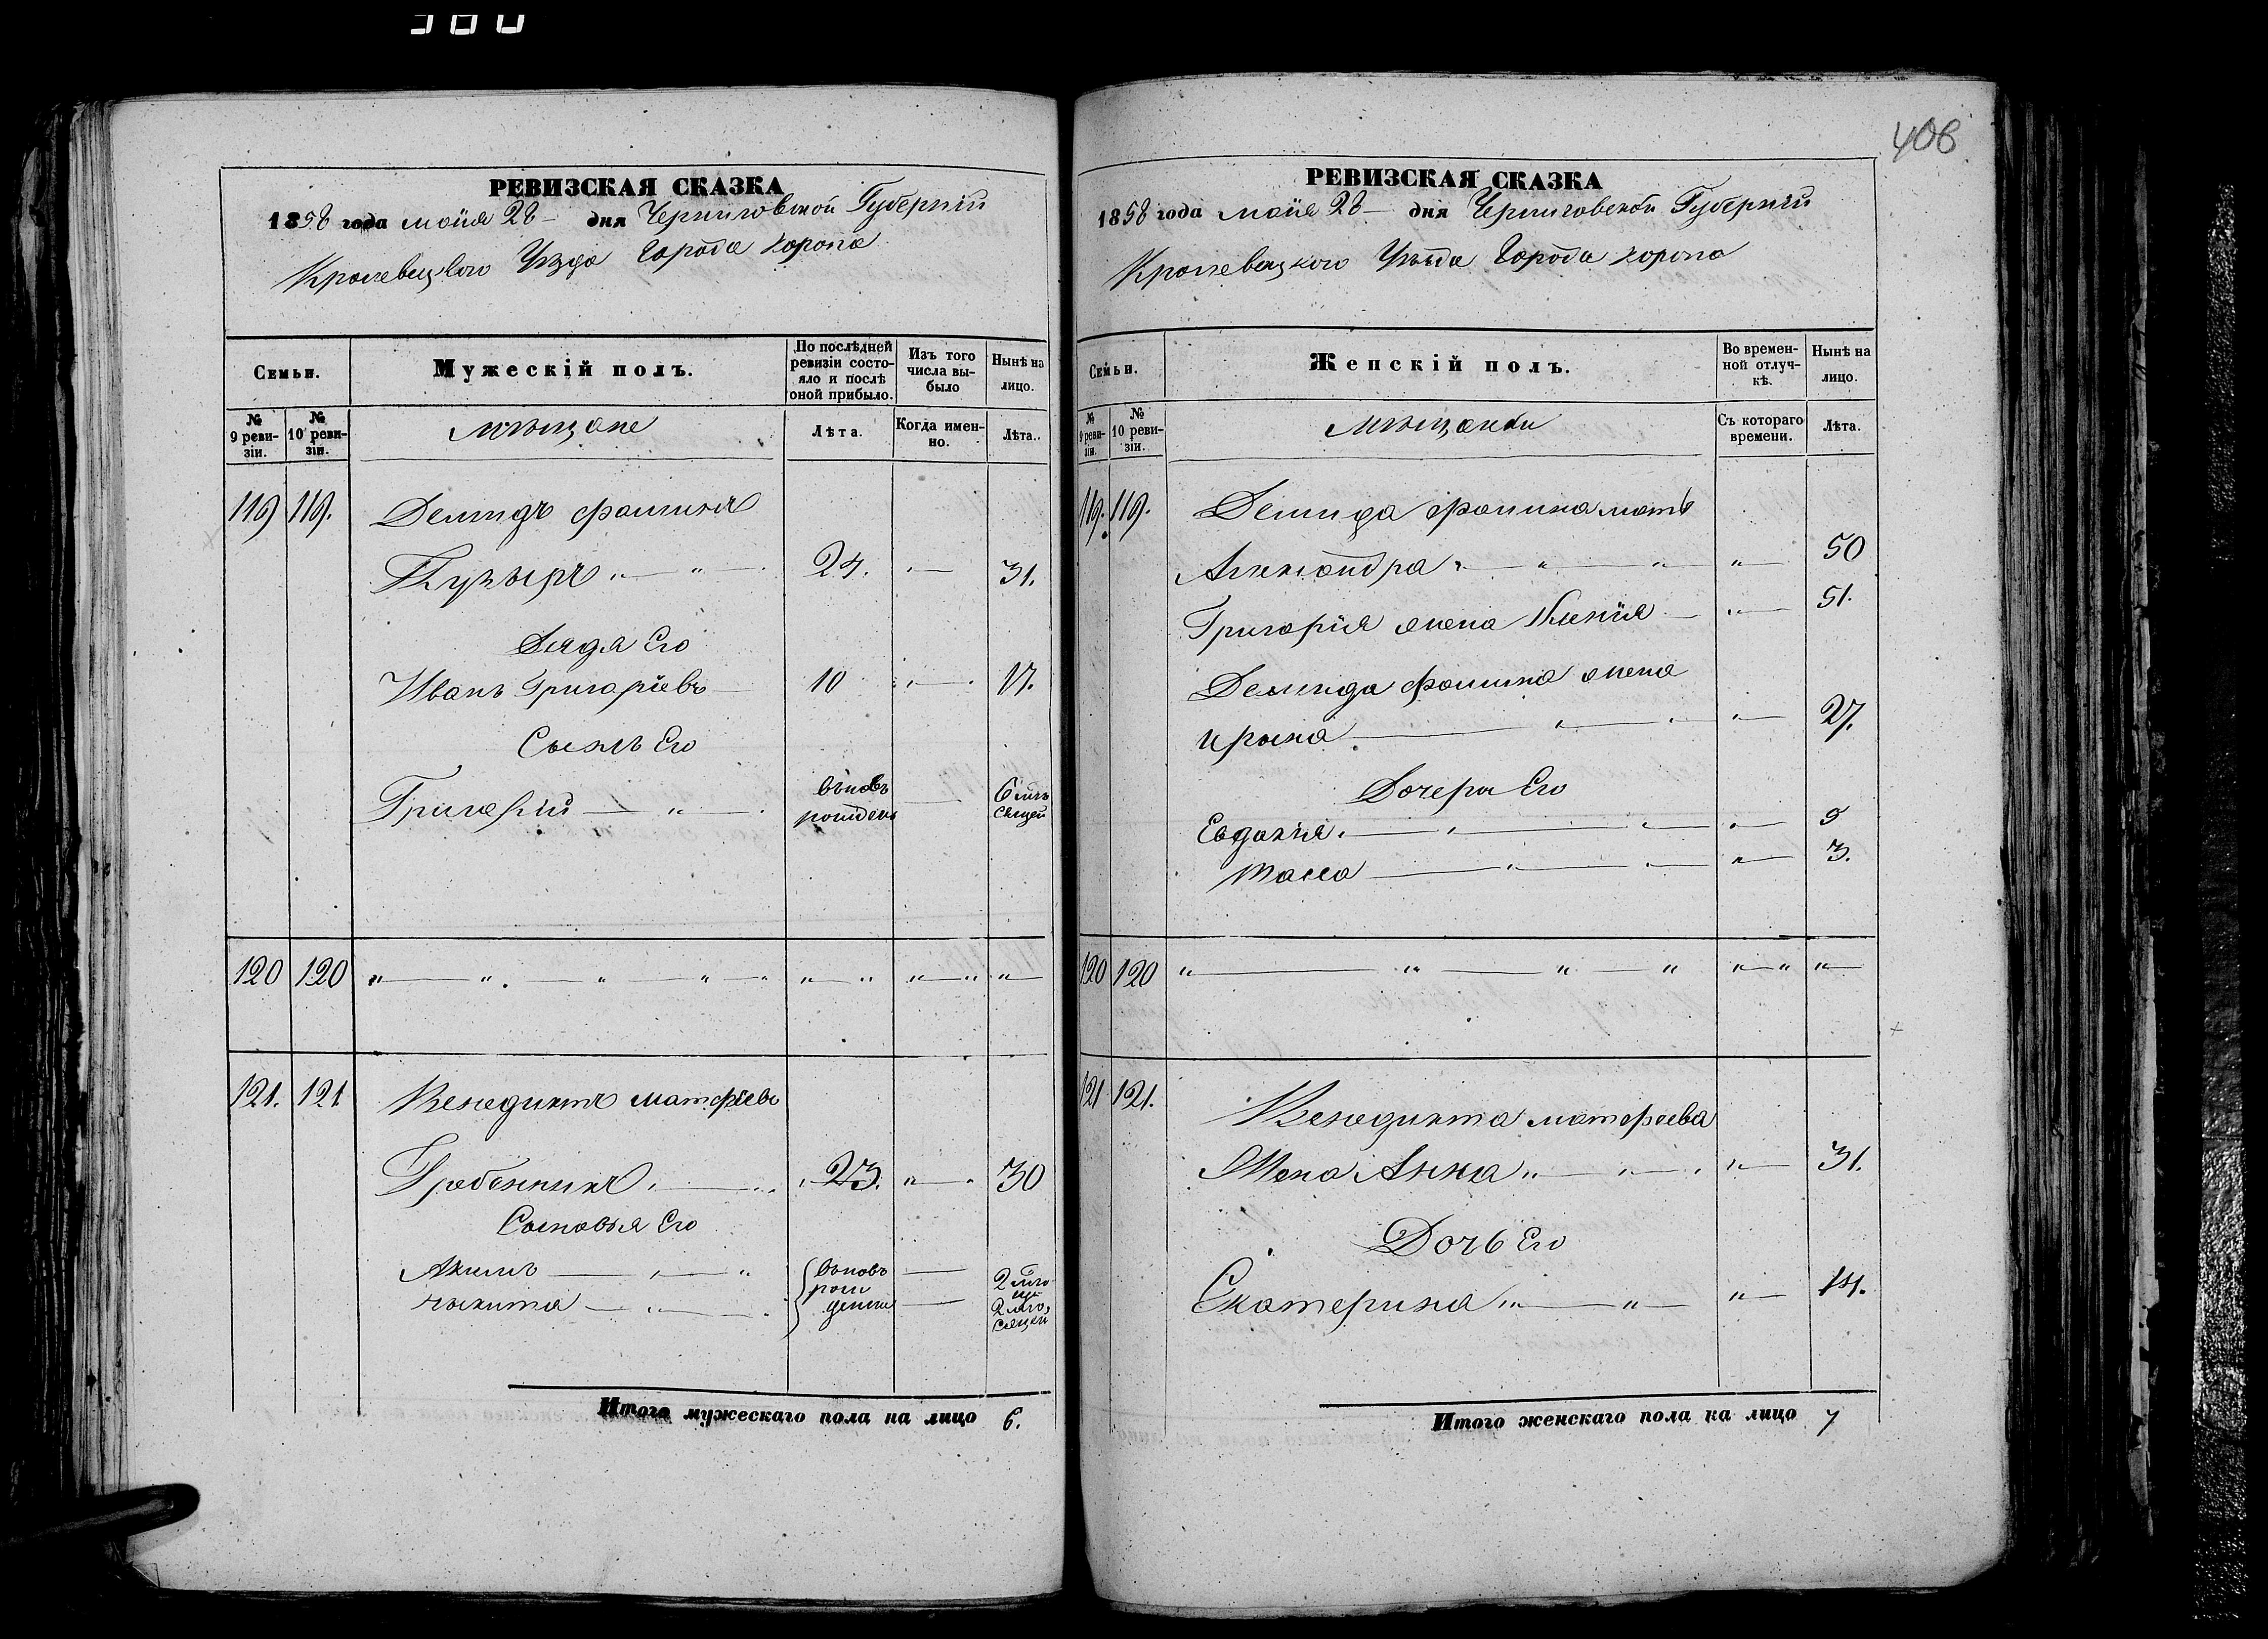 380
РЕВИЗСКАЯ СКАЗКА
1858 года майя 28 – дня Черниговской Губерніи
Кролевецкого Уѣзда Города Коропа
Семьи.
Мужескій полъ.
По послѣдней ревизіи состояло и послѣ оной прибыло.
Изъ того числа выбыло
Нынѣ на лицо.
№ 9 ревизіи.
№ 10 ревизіи.
мѣщане
Лѣта.
Когда именно.
Лѣта.
119 119. Демидъ Фоминъ
Пузырь 24. 31.
Дядя Его
Иванъ Григоріевъ 10 17.
Сынъ Его
Григорій вновь рожденъ 6 мѣсяцей
120 120
121. 121 Венедиктъ Матфѣевъ
Гребенникъ 23. 30
Сыновья Его
Акимъ вновь рожденны
Никита
Итого мужескаго пола на лицо 6.
408
РЕВИЗСКАЯ СКАЗКА
1858 года майя 28 – дня Черниговской Губерніи
Кролевецкого Уѣзда Города Коропа
Семьи.
Женскій полъ.
Во временной отлучкѣ.
Нынѣ на лицо.
№ 9 ревизіи.
№ 10 ревизіи.
мѣщанки
Съ котораго времени.
Лѣта.
119. 119. Демида Фомина мать
Александра 50
Григорія жена Ксенія 51.
Демида Фомина жена
Ирына 27.
Дочери Его
Евдокія
3.
120 120
121 121. Венедикта Матфеева
Жена Анна 31.
Дочь Его
Екатерина 14.
Итого женскаго пола на лицо 7